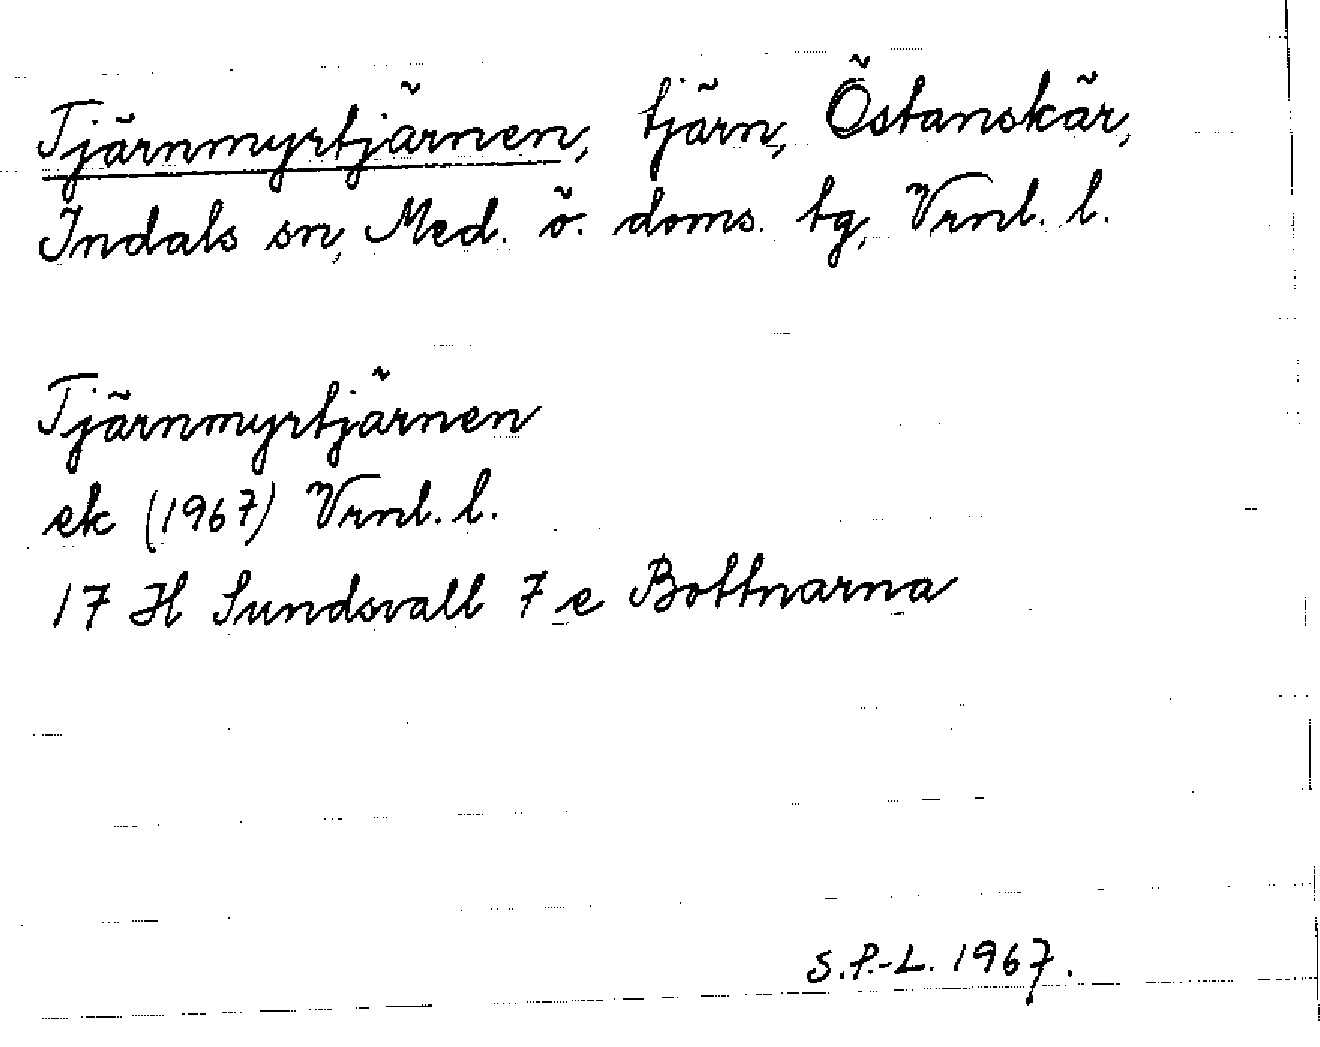 Tjärnmyrtjärnen, tjärn, Östanskär,
Indals sn, Med. ö. doms. tg, Vrnl. l.
Tjärnmyrtjärnen
ek (1967) Vrnl. l.
17 H Sundsvall 7 e Bottnarna
S.P.-L. 1967.